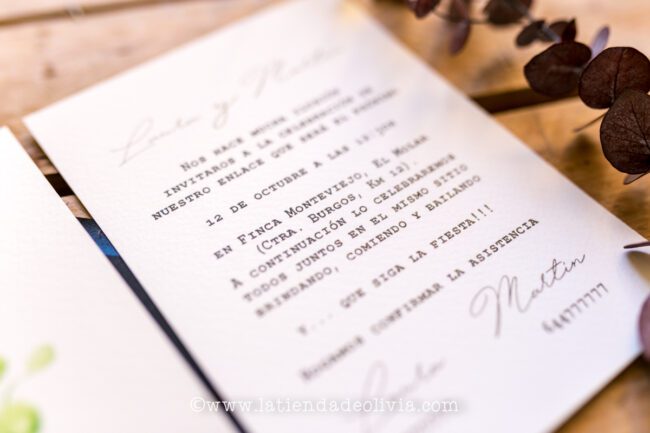 Laura y Martin
Nos hace mucha ilusión
invitaros a la celebración de
nuestro enlace que será el próximo
12 de octubre a las 13:30h
en Finca Monteviejo, El Molar
(Ctra. Burgos, Km 12).
A continuación lo celebraremos
todos juntos en el mismo sitio
brindando, comiendo y bailando
Y... que siga la fiesta!!!
Rogamos confirmar la asistencia
Laura
Martin
644777777
©www.latiendadeolivia.com